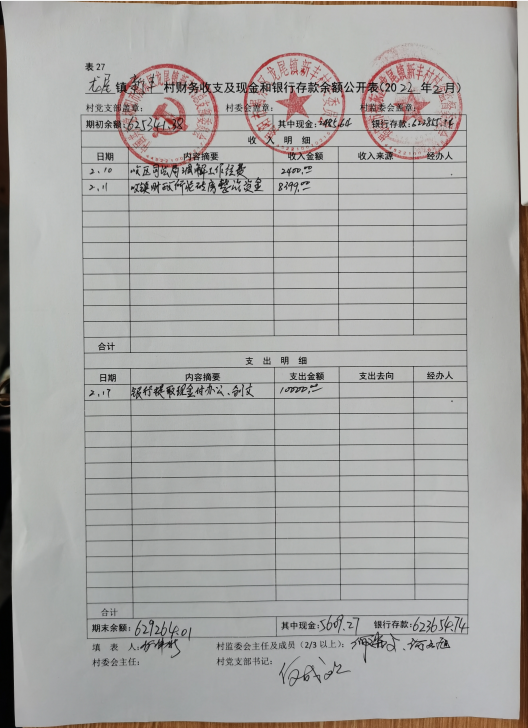 表27
龙尾镇新丰村财务收支及现金和银行存款余额公开表(2022年2月)
村党支部盖章: 村委会盖章: 村监委会盖章:
期初余额: 625341.33 其中现金: 银行存款:
收 入 明 细
日期 内容摘要 收入金额 收入来源 经办人
2.10 收区司法局调解工作经费 2400.00
2.11 收镇财政所 整治资金 8399.00
合计
支 出 明 细
日期 内容摘要 支出金额 支出去向 经办人
2.17 银行提取现金付办公、 10000.00
合计
期末余额: 629264.01 其中现金: 5609.27 银行存款: 623654.74
填 表 人: 村监委会主任及成员(2/3以上):
村委会主任: 村党支部书记: